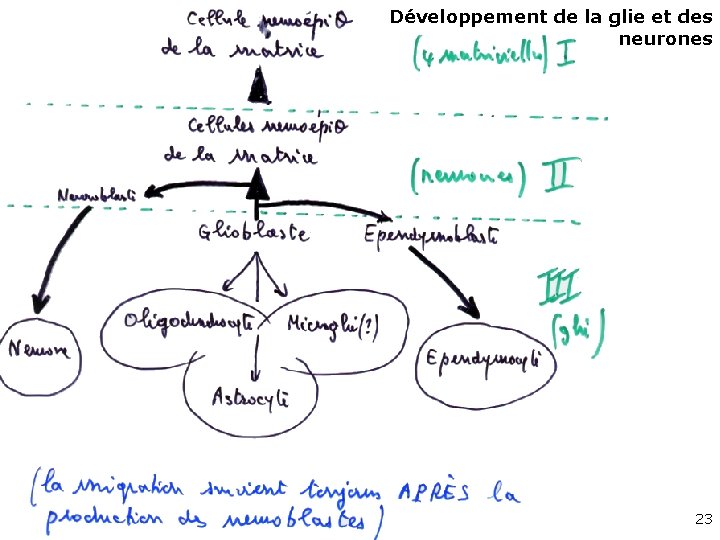 Développement de la glie et des
neurones
Cellule neuroépiθ
de la matrice
(ψ matricielle) I
Cellules neuroépiθ
de la matrice
(neurones) II
Neuroblaste
Glioblaste
Ependymoblaste
III
(glie)
Oligodendrocyte
Microglie(?)
Neurone
Ependymocyte
Astrocyte
(la migration survient toujours APRÈS la
production des neuroblastes)
23